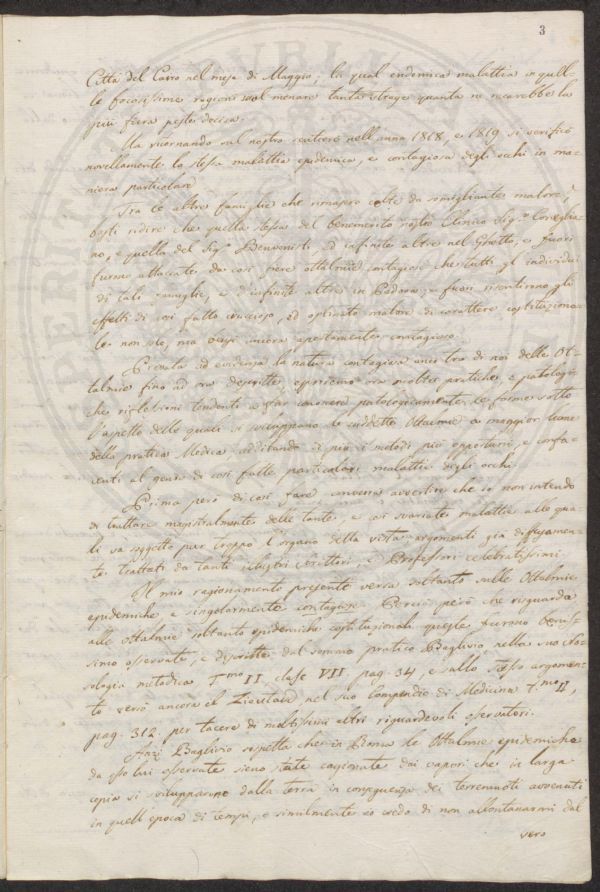 3
Città del Cairo nel mese di Maggio; la qual endemica malattia in quel-
le focosissime regioni suol menare tanta strage quanta ne recarebbe la
più fiera peste decisa.
Ma ritornando sul nostro sentiere nell'anno 1818, e 1819 si verificò
novellamente la stessa malattia epidemica, e contagiosa degli occhi in ma-
niera particolare
Tra le altre famiglie che rimasero colte da somigliante malore,
basti ridire che quella stessa del benemerito nostro Clinico Sig.r Coneglia-
no, e quella del Sig.r Benvenisti, ed infinite altre nel Ghetto, e fuori
furono attaccate da così fiere ottalmie contagiose che tutti gl' individui
di tali famiglie, e d'infinite altre in Padova, e fuori risentirono gli
effetti di così fatto, ed ostinato malore di carattere costituziona-
le non solo, ma ancora apertamente contagioso.
Provata ad evidenza la natura contagiosa anco tra di noi delle Ot-
talmie fino ad ora descritte, esporremo ora molte pratiche, e patologi-
che riflessioni tendenti a far conoscere patologicamente le forme sotto
l'aspetto delle quali si sviluppano le suddette Ottalmie a maggior lume
della pratica Medica, additando di più i metodi più opportuni, e confa-
centi al genio di così fatte particolari malattie degli occhi.
Prima però di così fare converrà avvertire che io non intendo
di trattare magistralmente delle tante, e così svariate malattie alle qua-
li va soggetto pur troppo l'organo della vista argomenti già diffusamen-
te trattati da tanti illustri scrittori, e Professori celebratissimi.
Il mio ragionamento presente verrà soltanto sulle Ottalmie
epidemiche e singolarmente contagiose. Perciò però che risguarda
alle ottalmie soltanto epidemiche costituzionali queste furono benis-
simo osservate, e descritte dal sommo pratico Baglivio, nella sua No-
sologia metodica Tmo II, clase VII, pag. 34, e sullo stesso argomen-
to versò ancora il nel suo Compendio di Medicina T.mo II,
pag. 312. per tacere di moltissimi altri riguardevoli osservatori.
Anzi Baglivio sospetta che in Roma le Ottalmie epidemiche
da esso lui osservate sieno state cagionate dai vapori che in larga
copia si svilupparono dalla terra in conseguenza dei terremoti avvenuti
in quell'epoca di tempi, e similmente io credo di non allontanarmi dal
vero